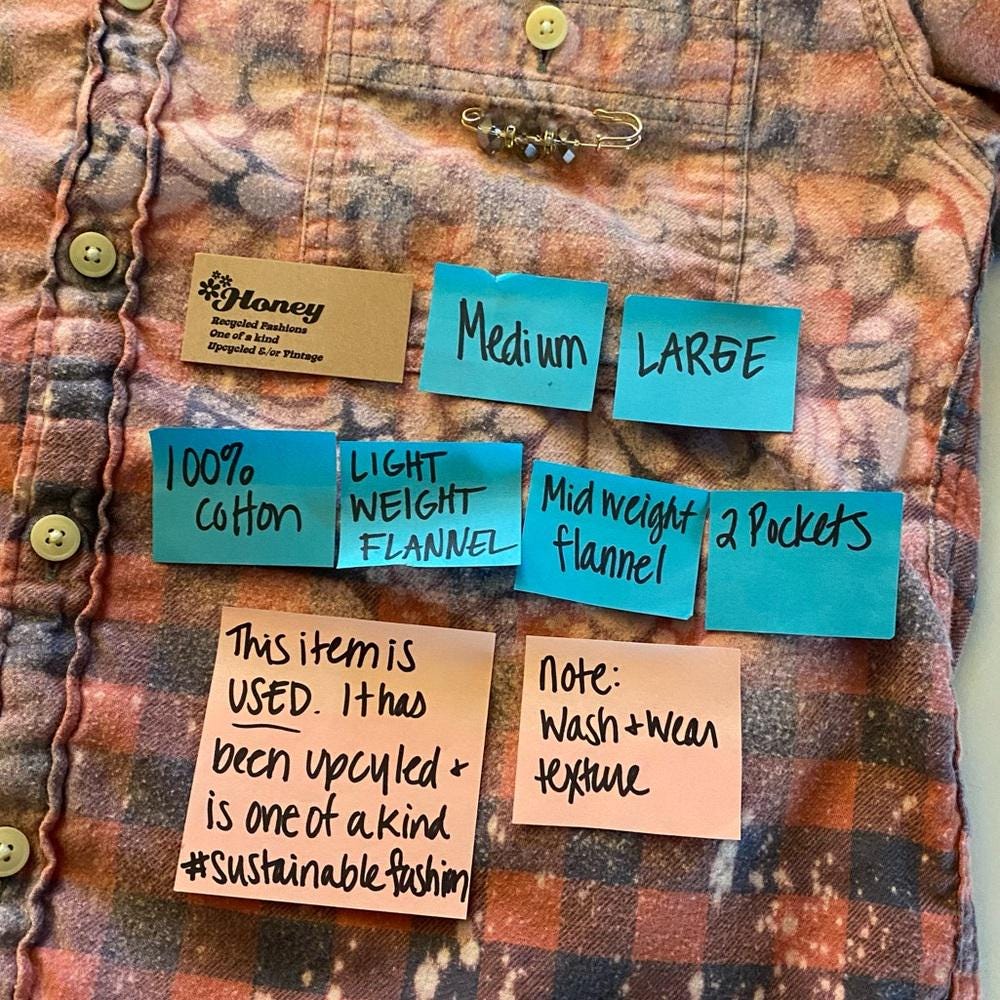 Honey
Recycled Fashions
One of a kind
Upcycled &/or Vintage
Medium
LARGE
100%
cotton
LIGHT
WEIGHT
FLANNEL
Mid weight
flannel
2 Pockets
This item is
USED. It has
been upcyled +
is one of a kind
#sustainable fashion
note:
wash + wear
texture